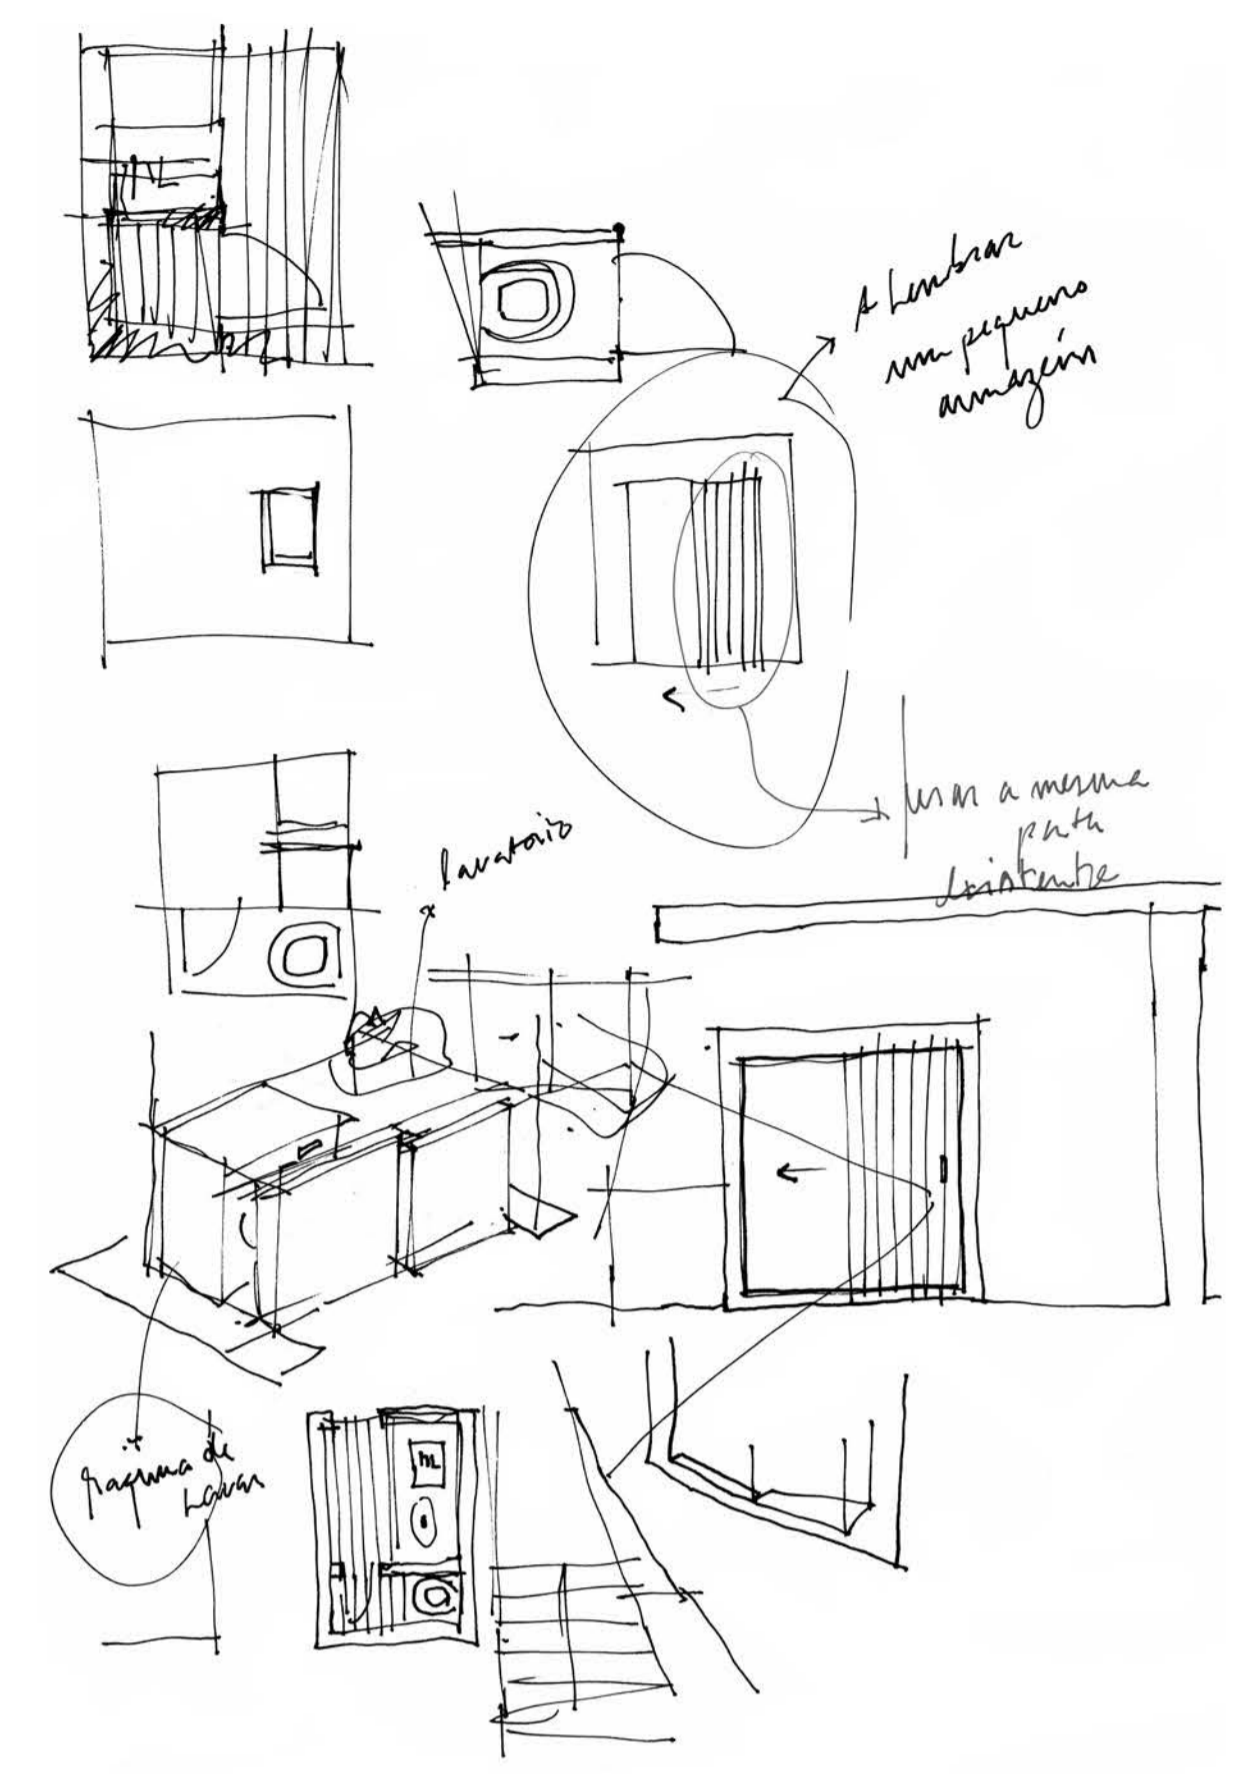 ML
A Lembrar
um pequeno
armazém
usar a mesma
porta
existente
lavatorio
maquina de
Lavar
ML